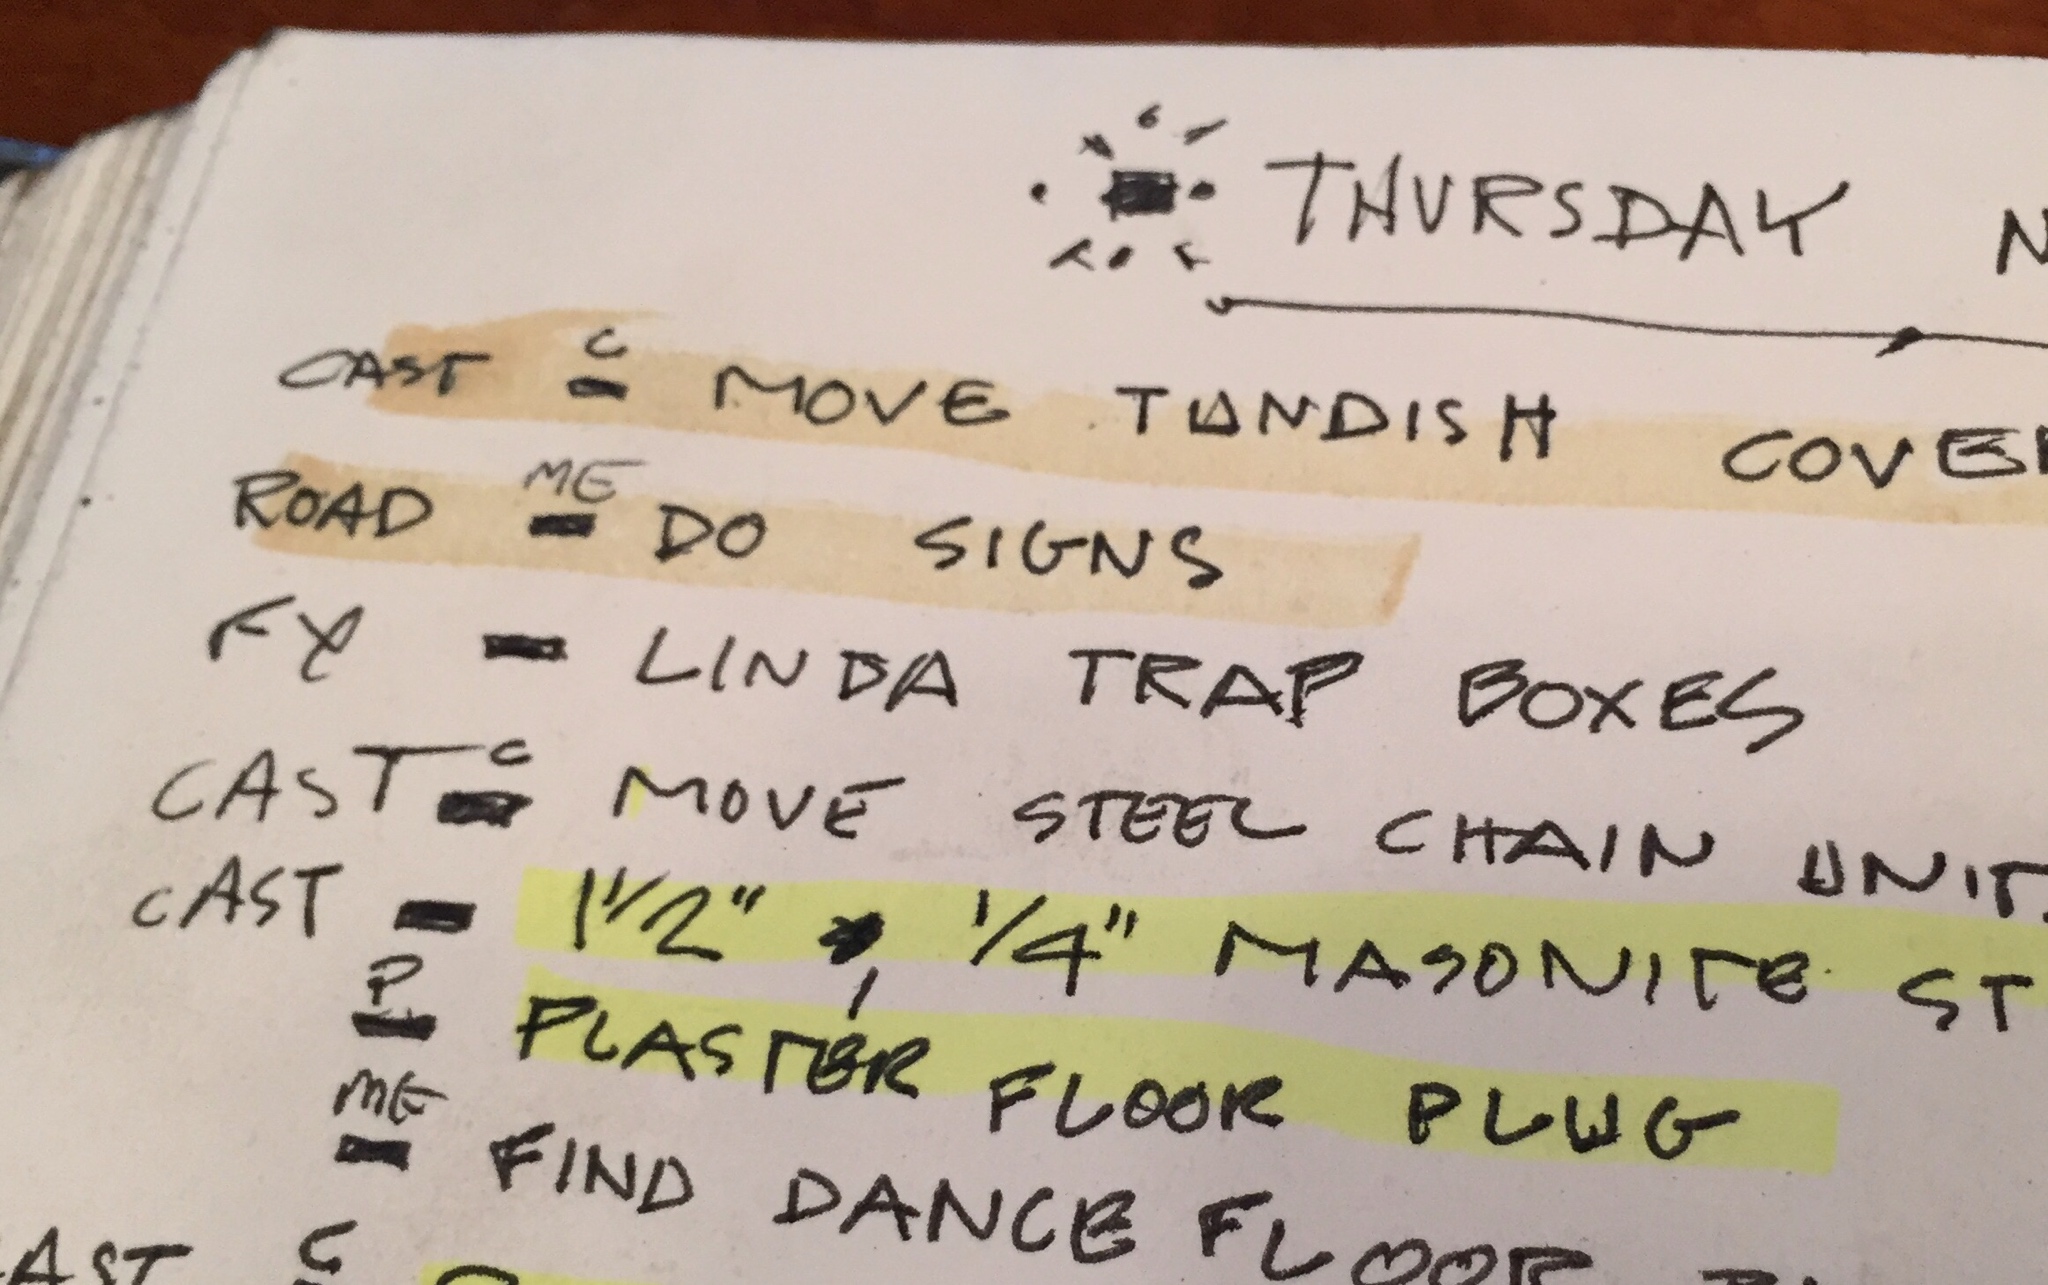 THURSDAY N
CAST C - MOVE TANDISH COVE
ROAD ME - DO SIGNS
FX - LINDA TRAP BOXES
CAST C - MOVE STEEL CHAIN UNIT
CAST - 1 1/2" , 1/4" MASONITE ST
P - PLASTER FLOOR PLUG
ME - FIND DANCE FLOOR
AST C